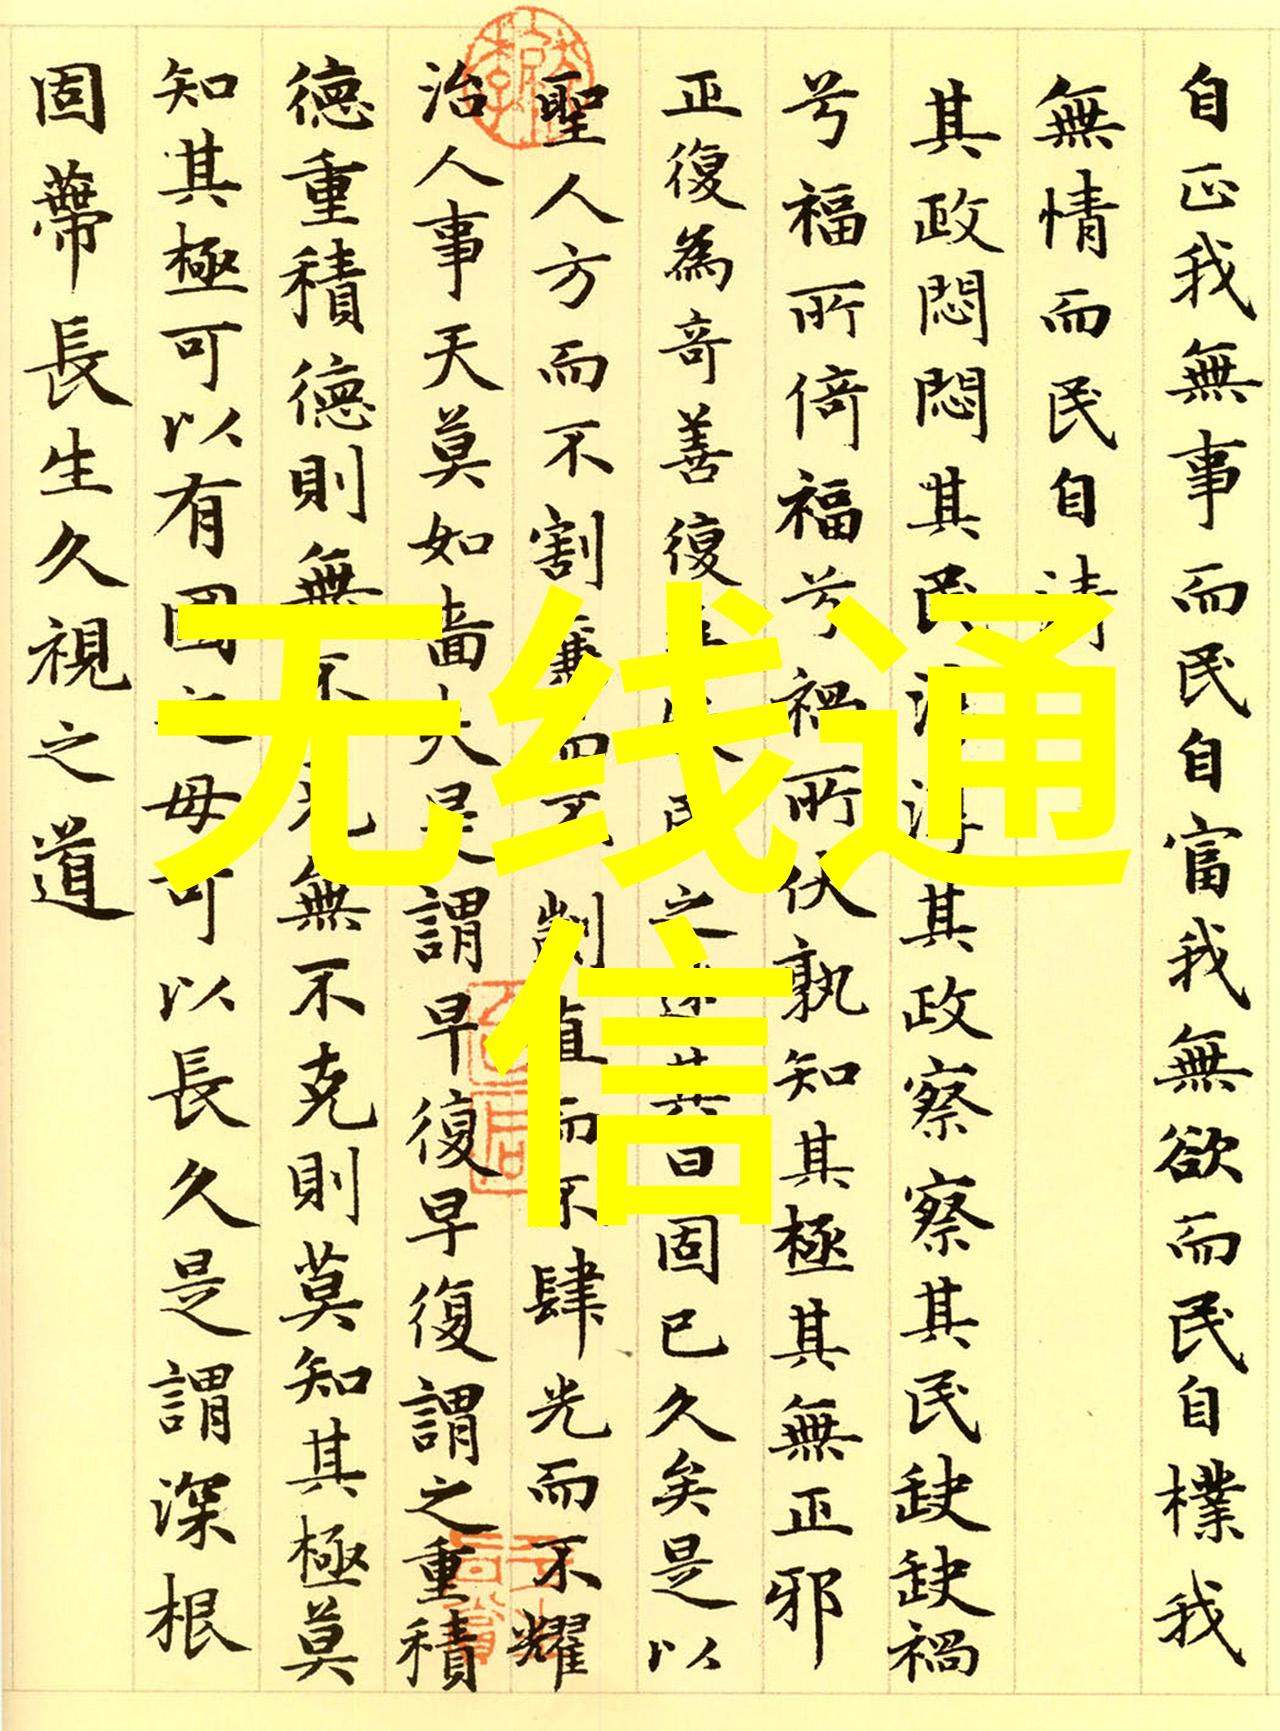 自正我無事而民自富我無欲而民自樸我
無情而民自清
其政悶悶其民淳淳其政察察其民缺缺禍
兮福所倚福兮禍所伏孰知其極其無正邪
正復為奇善復民之其日固已久矣是以
聖人方而不割廉而不劌直而不肆光而不耀
治人事天莫如嗇夫是謂早復早復謂之重積
德重積德則無不克無不克則莫知其極莫
知其極可以有國之母可以長久是謂深根
固蔕長生久視之道
无线通
信